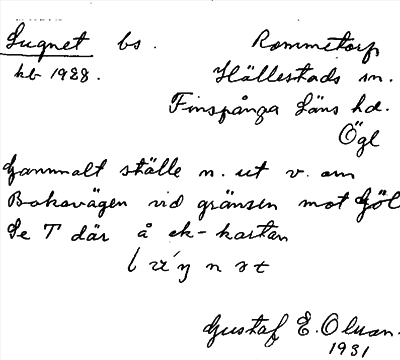 Lugnet bs. Rommetorp
hb 1928. Hällestads sn.
Finspånga Läns hd.
Ögl
Gammalt ställe n. ut v. om
Boksvägen vid gränsen mot Göl
Se T där å ek-kartan
Gustaf E. Olsson.
1931